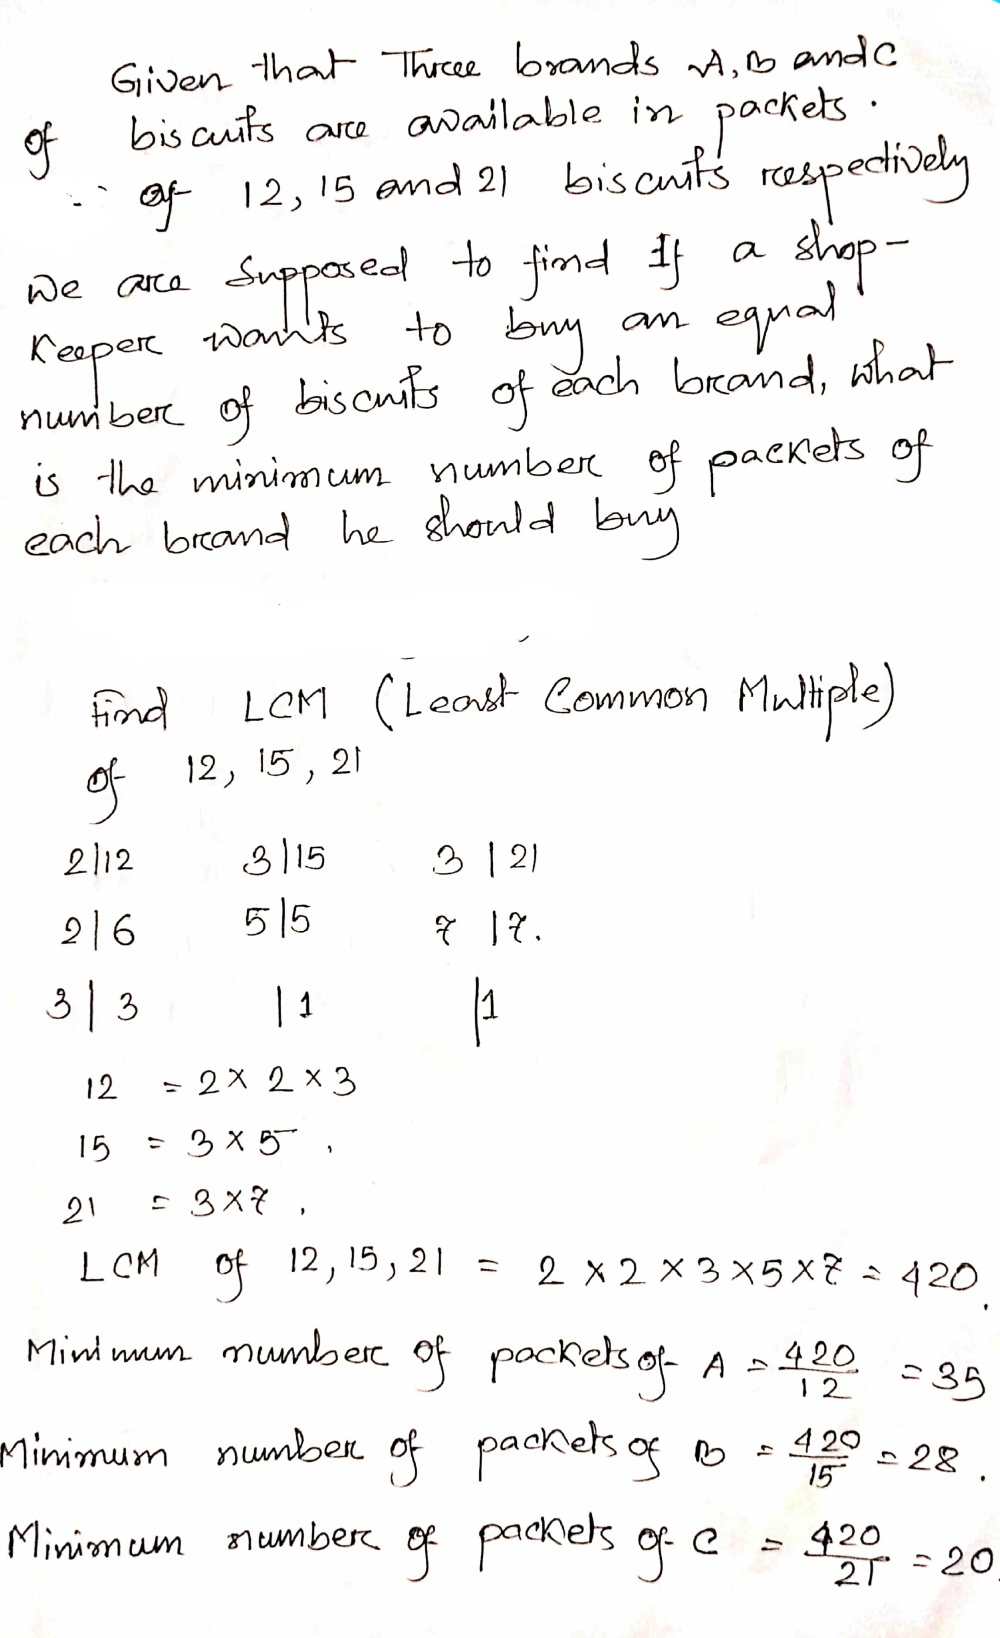 Given that Three brands A, B and C
of biscuits are available in packets.
of 12, 15 and 21 biscuits respectively
we are supposed to find If a shop-
keeper wants to buy an equal
number of biscuits of each brand, what
is the minimum number of packets of
each brand he should buy
Find LCM (Least Common Multiple)
of 12, 15, 21
2|12 3|15 3|21
2|6 5|5 7|7.
3|3 |1 |1
12 = 2 × 2 × 3
15 = 3 × 5,
21 = 3 × 7,
LCM of 12, 15, 21 = 2 × 2 × 3 × 5 × 7 = 420.
Minimum number of packets of A = 420/12 = 35
Minimum number of packets of B = 420/15 = 28.
Minimum number of packets of C = 420/21 = 20.